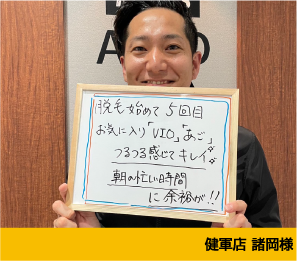 脱毛始めて5回目
お気に入り「VIO」「あご」
つるつる感じてキレイ
朝の忙しい時間
に余裕が!!
健軍店 諸岡様